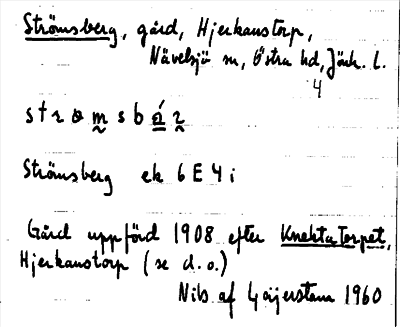 Strömsberg, gård, Hjerkanstorp,
Nävelsjö sn, Östra hd, Jönk. l.
4
Strömsberg ek 6 E 4 i
Gård uppförd 1908 efter Knektatorpet,
Hjerkanstorp (se d. o.)
Nils af Geijerstam 1960